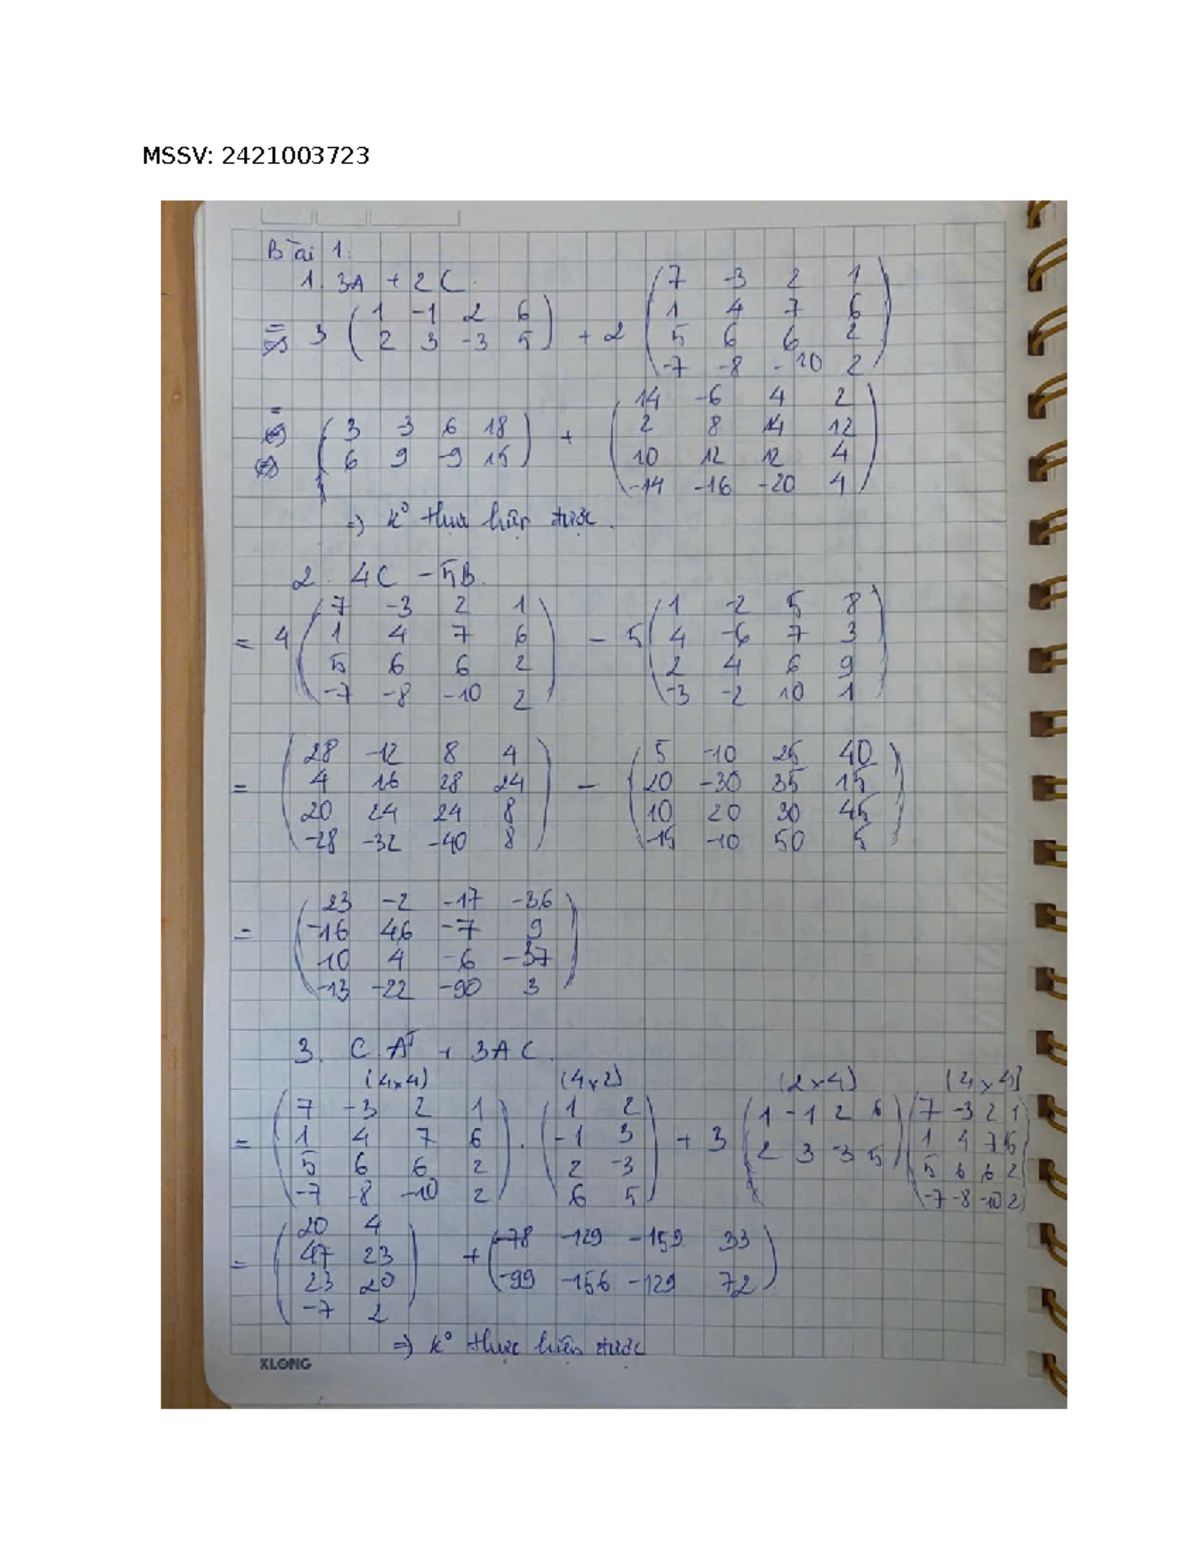 MSSV: 2421003723
Bài 1.
1. 3A + 2C.
= 3 ( 1 -1 2 6 ; 2 3 -3 5 ) + 2 ( 7 -3 2 1 ; 1 4 7 6 ; 5 6 6 2 ; -7 -8 -10 2 )
= ( 3 -3 6 18 ; 6 9 -9 15 ) + ( 14 -6 4 2 ; 2 8 14 12 ; 10 12 12 4 ; -14 -16 -20 4 )
=> k° thực hiện được.
2. 4C - 5B.
= 4 ( 7 -3 2 1 ; 1 4 7 6 ; 5 6 6 2 ; -7 -8 -10 2 ) - 5 ( 1 -2 5 8 ; 4 -6 7 3 ; 2 4 6 9 ; -3 -2 10 1 )
= ( 28 -12 8 4 ; 4 16 28 24 ; 20 24 24 8 ; -28 -32 -40 8 ) - ( 5 -10 25 40 ; 20 -30 35 15 ; 10 20 30 45 ; -15 -10 50 5 )
= ( 23 -2 -17 -36 ; -16 46 -7 9 ; 10 4 -6 -37 ; -13 -22 -90 3 )
3. C A^T + 3AC.
(4x4) (4x2) (2x4) (4x4)
= ( 7 -3 2 1 ; 1 4 7 6 ; 5 6 6 2 ; -7 -8 -10 2 ) . ( 1 2 ; -1 3 ; 2 -3 ; 6 5 ) + 3 ( 1 -1 2 6 ; 2 3 -3 5 ) ( 7 -3 2 1 ; 1 4 7 6 ; 5 6 6 2 ; -7 -8 -10 2 )
= ( 20 4 ; 47 23 ; 23 20 ; -7 2 ) + ( -78 -129 -159 33 ; -99 -156 -129 72 )
=> k° thực hiện được
KLONG